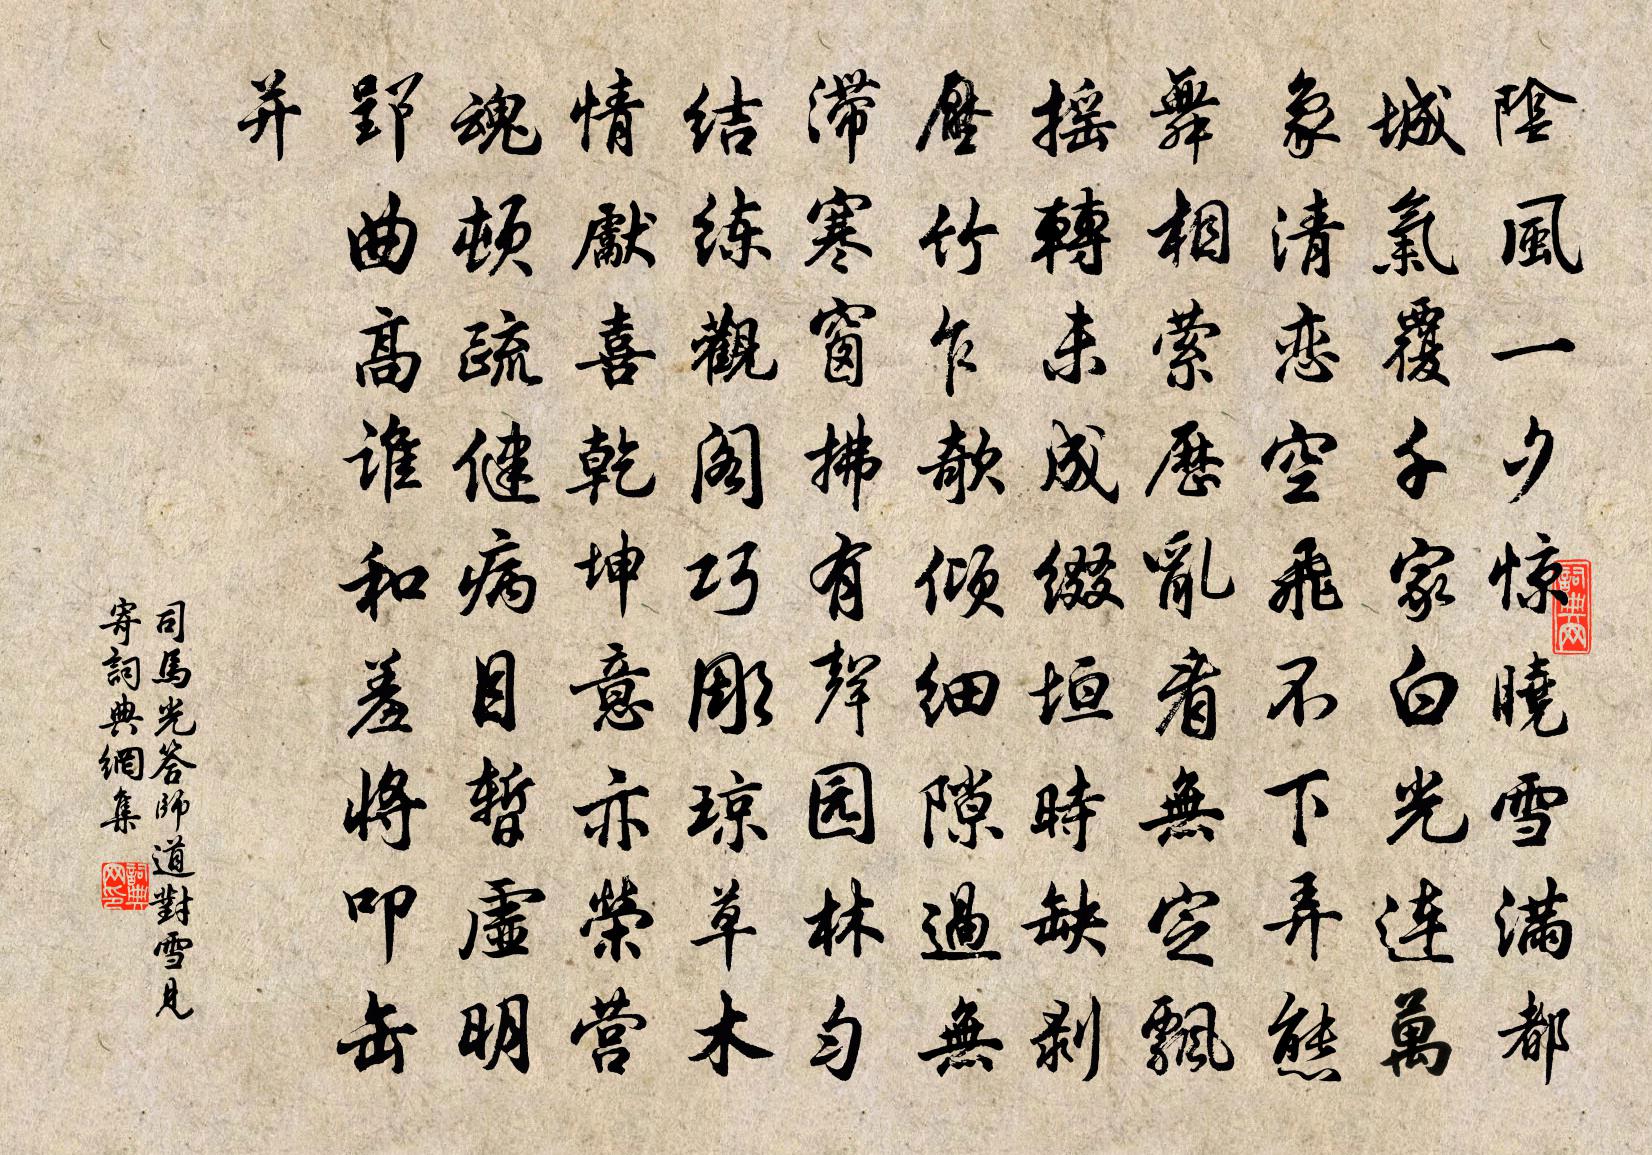 陰風一夕惊曉雪滿都
城氣覆千家白光连萬
象清恋空飛不下弄態
舞相萦歷亂看無定飄
摇轉未成缀垣時缺剥
壓竹乍欹倾細隙過無
滞寒窗拂有聲园林匀
结练觀阁巧彫琼草木
情獻喜乾坤意亦榮营
魂顿疏健病目暫虛明
郢曲高谁和羞将叩缶
并
司馬光答師道對雪見
寄詞典網集
詞典网
詞典网印